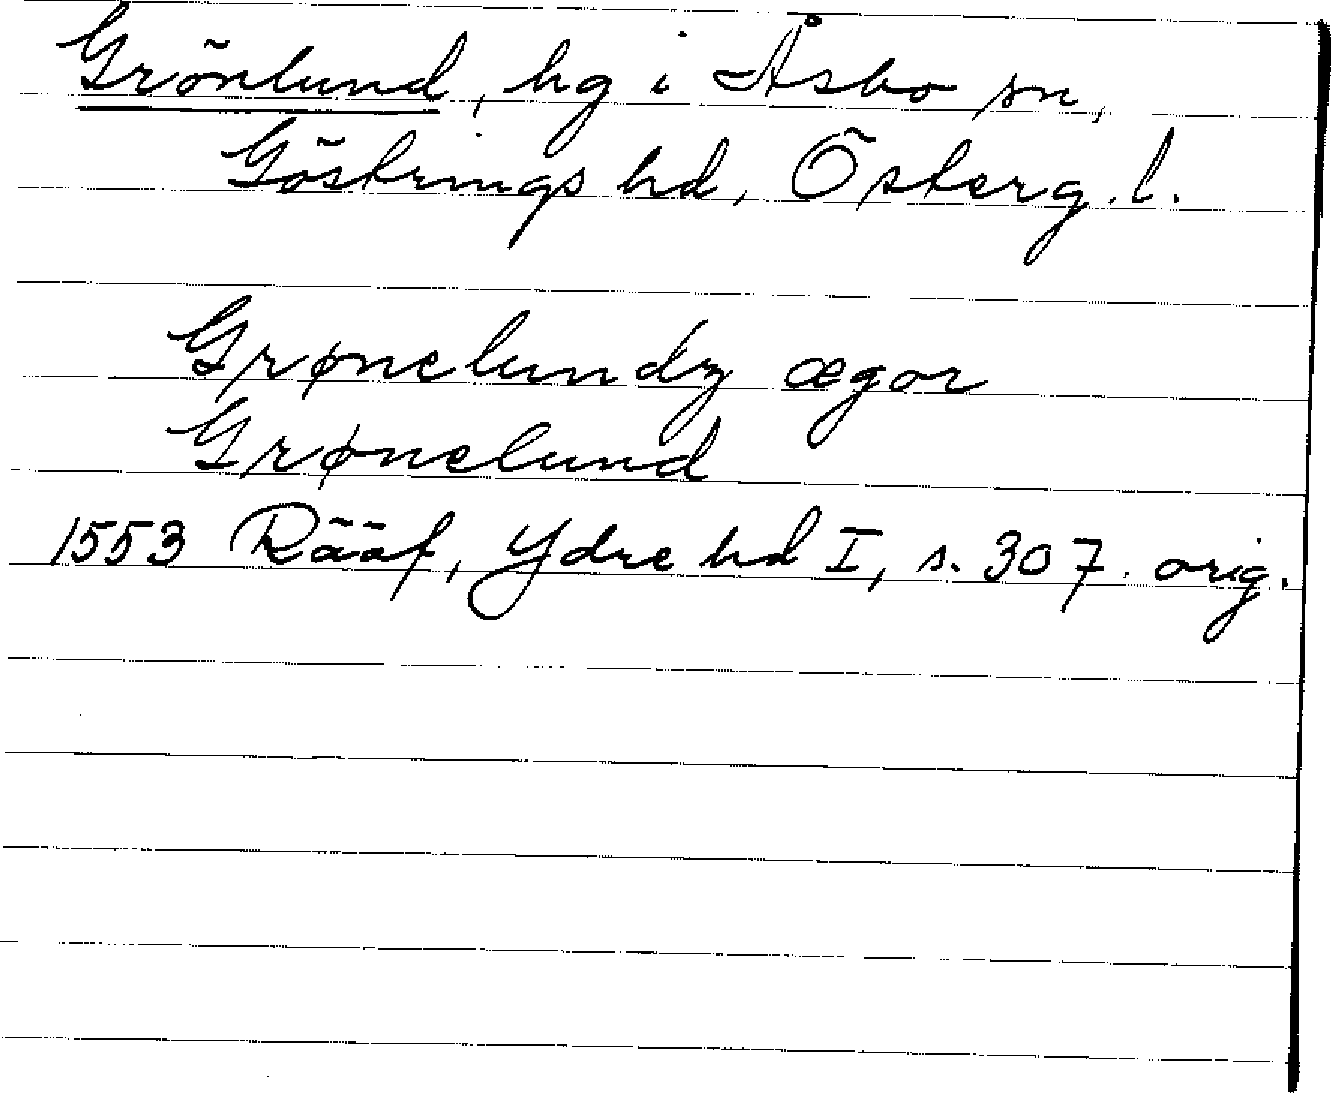 Grönlund, hg i Åsbo sn,
Göstrings hd, Österg. l.
Grønelundz ægor
Grønelund
1553 Rääf, Ydre hd I, s. 307. orig.